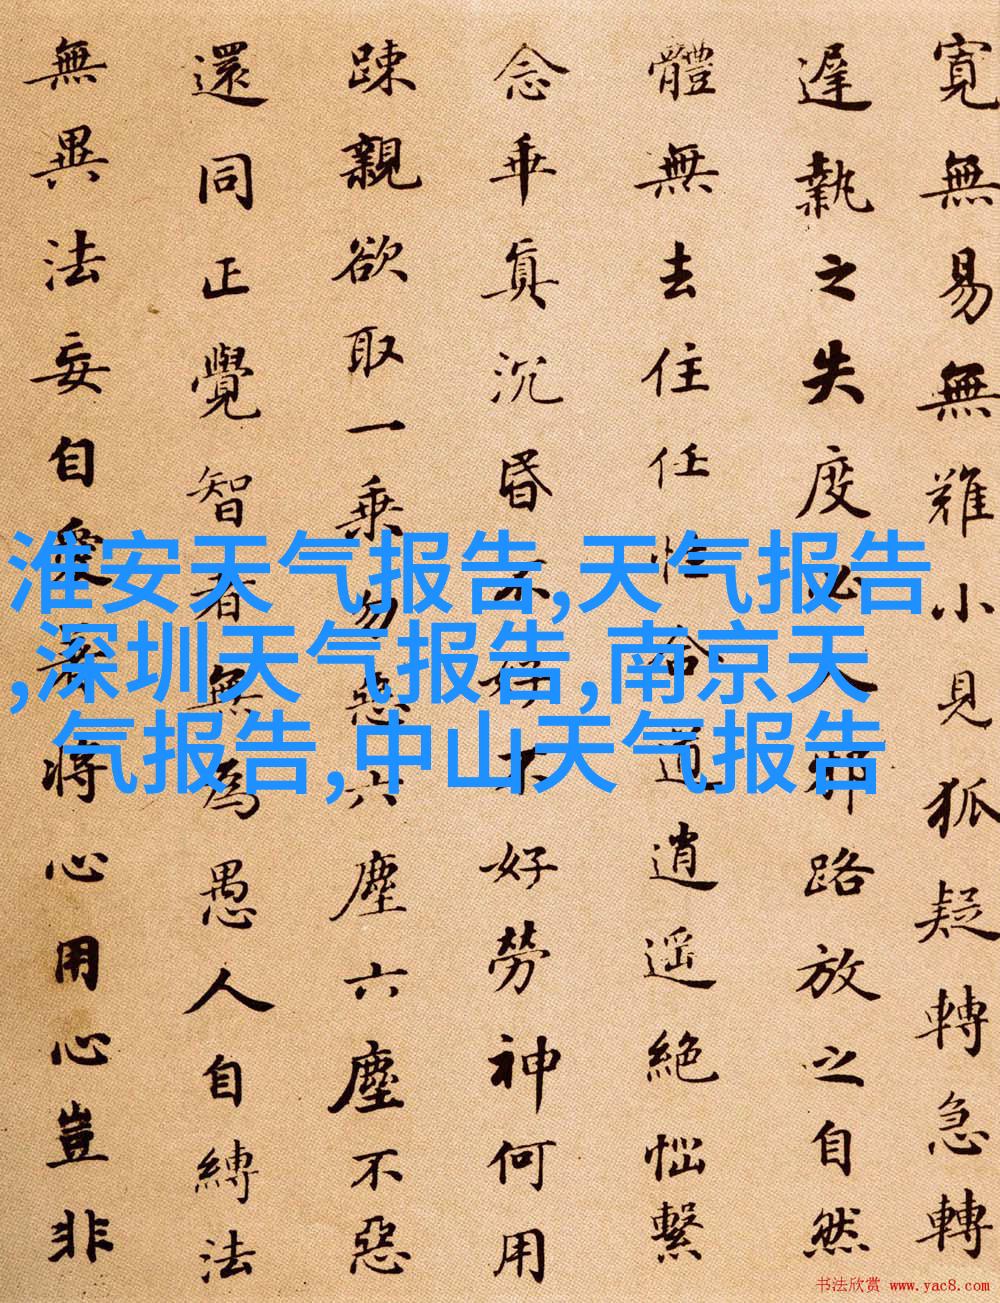 寬無易無難小見狐疑轉急轉
遲執之失度必入邪路放之自然
體無去住任性合道逍遥絶惱繫
念乖真沉昏不好不好勞神何用
踈親欲取一乘勿惡六塵六塵不惡
還同正覺智者無為愚人自縛法
無異法妄自愛著將心用心豈非
淮安天气报告,天气报告
,深圳天气报告,南京天
气报告,中山天气报告
书法欣赏 www.yac8.com